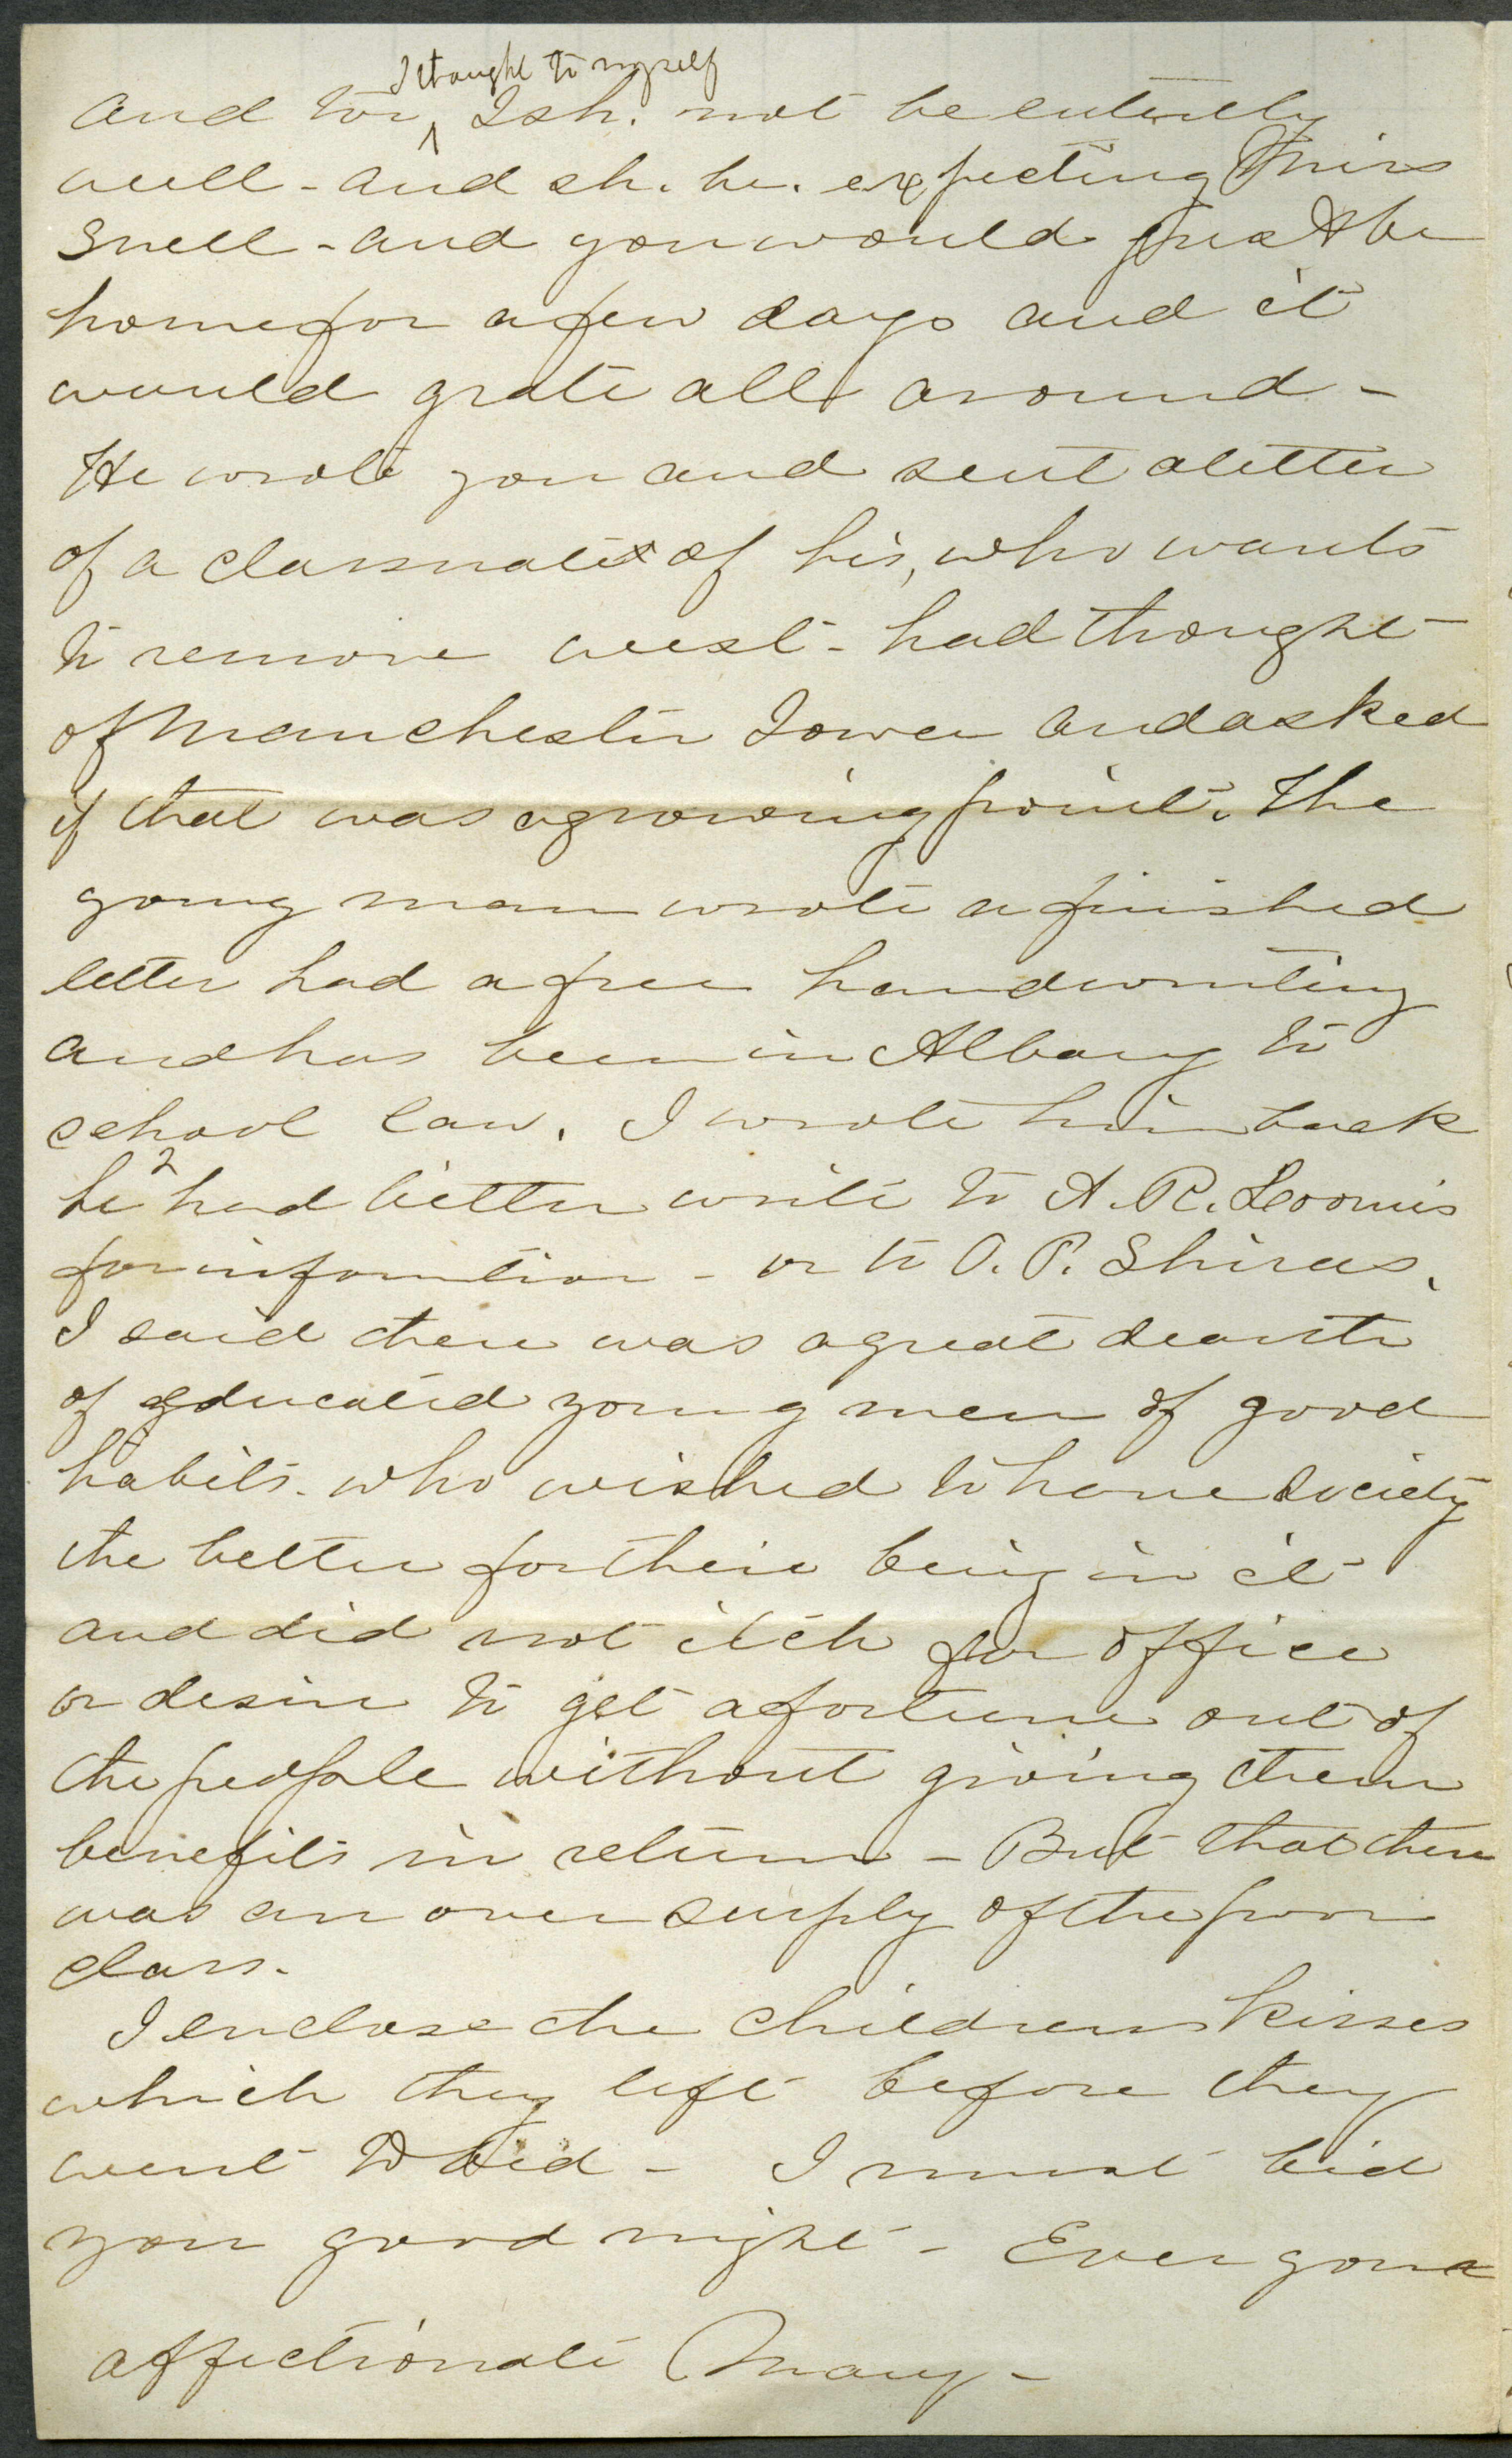 I thought to myself
And too ^ I sh. not be entirely
well - and sh. be. expecting Miss
Snell - and you would just be
home for a few days and it
would grate all around -
He wrote you and sent a letter
of a classmate of his, who wants
to remove west - had thought
of Manchester Iowa and asked
if that was a growing point. The
young man wrote a finished
letter had a free handwriting
and has been in Albany to
school law. I wrote him back
he had better write to A. R. Loomis
for information - or to O. P. Shiras.
I said there was a great dearth
of educated young men of good
habits. who wished to have society
the better for their being in it
and did not itch for office
or desire to get a fortune out of
the people without giving them
benefits in return - But that there
was an over supply of the poor
class.
I enclose the childrens kisses
which they left before they
went to bed - I must bid
you good night - Ever your
affectionate Mary -